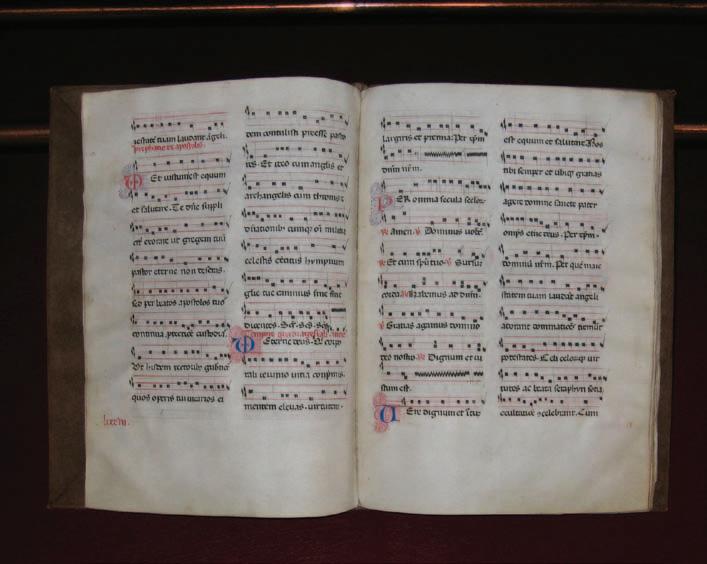 iestaté tuam laudant ágeli.
prephatio de apostolis.
Et iustum est equum
et salutare. Te dñe suppli
citer exorare ut gregem tuũ
pastor eterne non deseras.
sed per beatos apostolos tuos
continua protectiõe custodias.
Vt hisdem rectorib; gubernet
quos operis tui vicarios ei
lxxvii.
dem contulisti preesse pasto
res. Et ideo cum angelis et
archangelis cum thronis et
dominationib; cumqz oi militia
celestis exercitus hympnum
glie tue canimus sine fine
dicentes. Scs. Scs. Scs.
Eterne deus. Qui corpo
rali ieiunio uitia cõprimis.
mentem eleuas. uirtutem.
largiris et premia. Per xpm
dnm nrm.
PER omnia secula seclor
amen. Dominus uobis
Et cum spũ tuo. Sursũ
corda. Habemus ad dnm.
Gratias agamus domino
deo nostro. Dignum et iu
stum est.
Vere dignum et iustũ
est equum et salutare. Nos
tibi semper et ubiqz gratias
agere domine sancte pater
omps eterne deus. Per xpm.
dominũ nrm. Per quem maie
statem tuam laudant angeli
adorant dominatiões tremunt
potestates. Celi celorũqz uir
tutes ac beata seraphyn socia
exultatiõe concelebrant. Cum